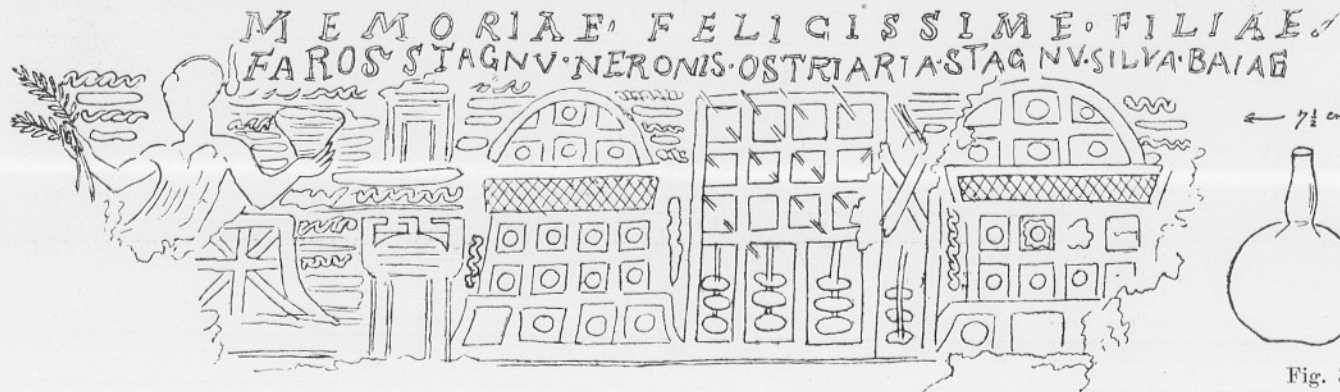 MEMORIAE · FELICISSIME · FILIAE ·
FAROS STAGNV · NERONIS · OSTRIARIA · STAGNV · SILVA · BAIAE
← 7½ cm
Fig.